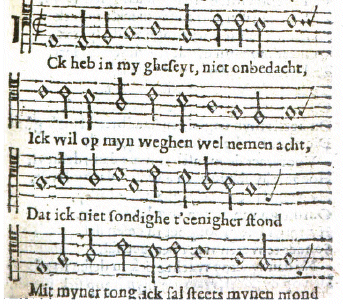 Ck heb in my gheseyt, niet onbedacht,
Ick wil op myn weghen wel nemen acht,
Dat ick niet sondighe t'eenigher stond
Mit myner tong, ick sal steets mynen mond